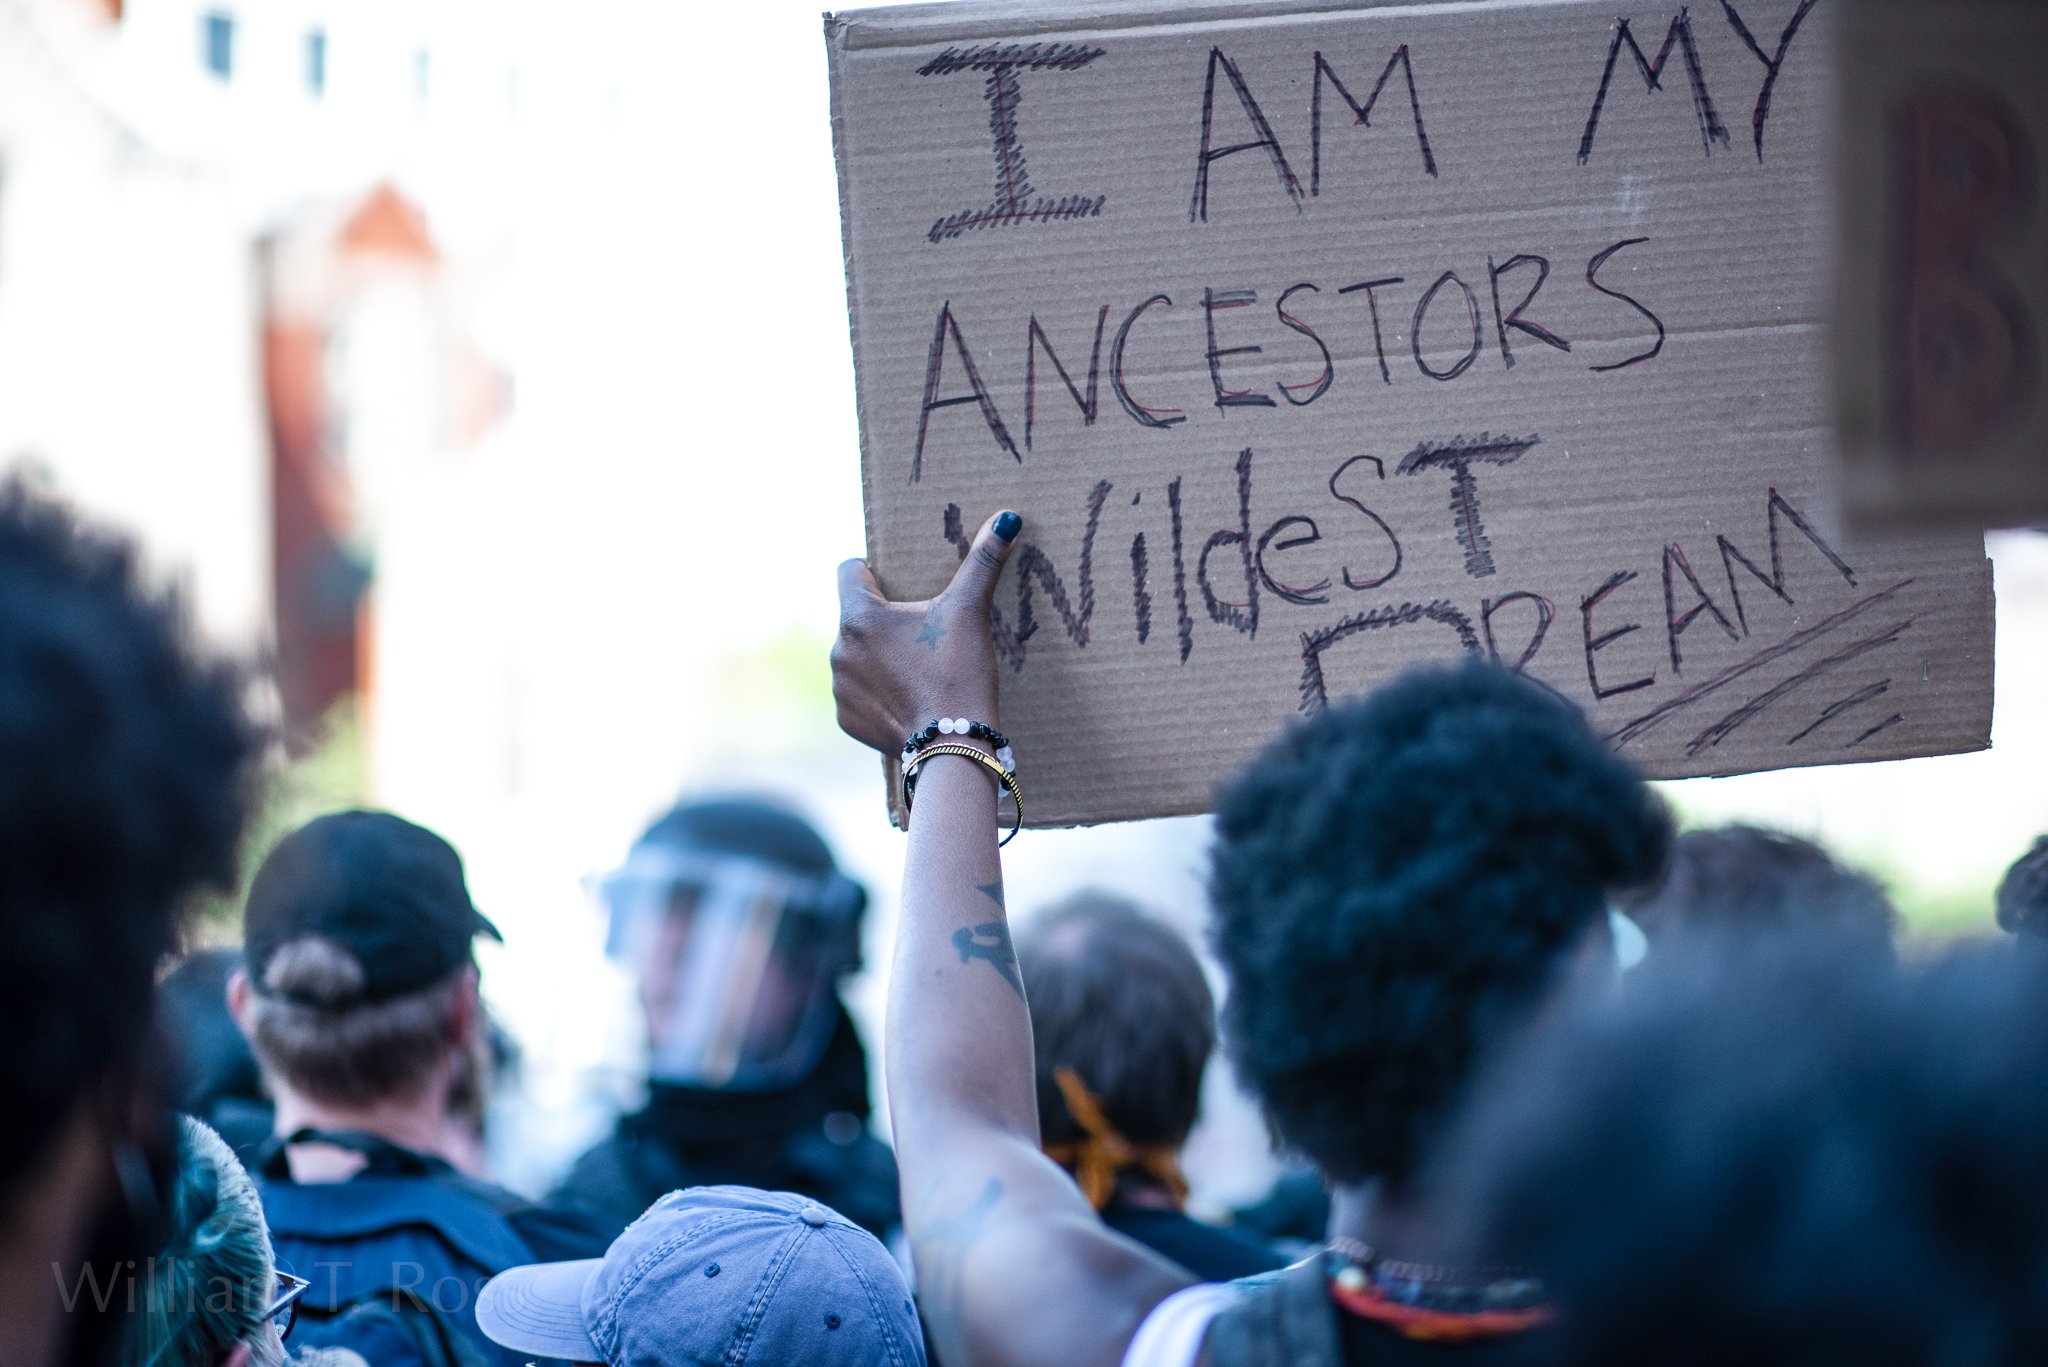 I AM MY
ANCESTORS
WildeST
DREAM
B
William T. Ros